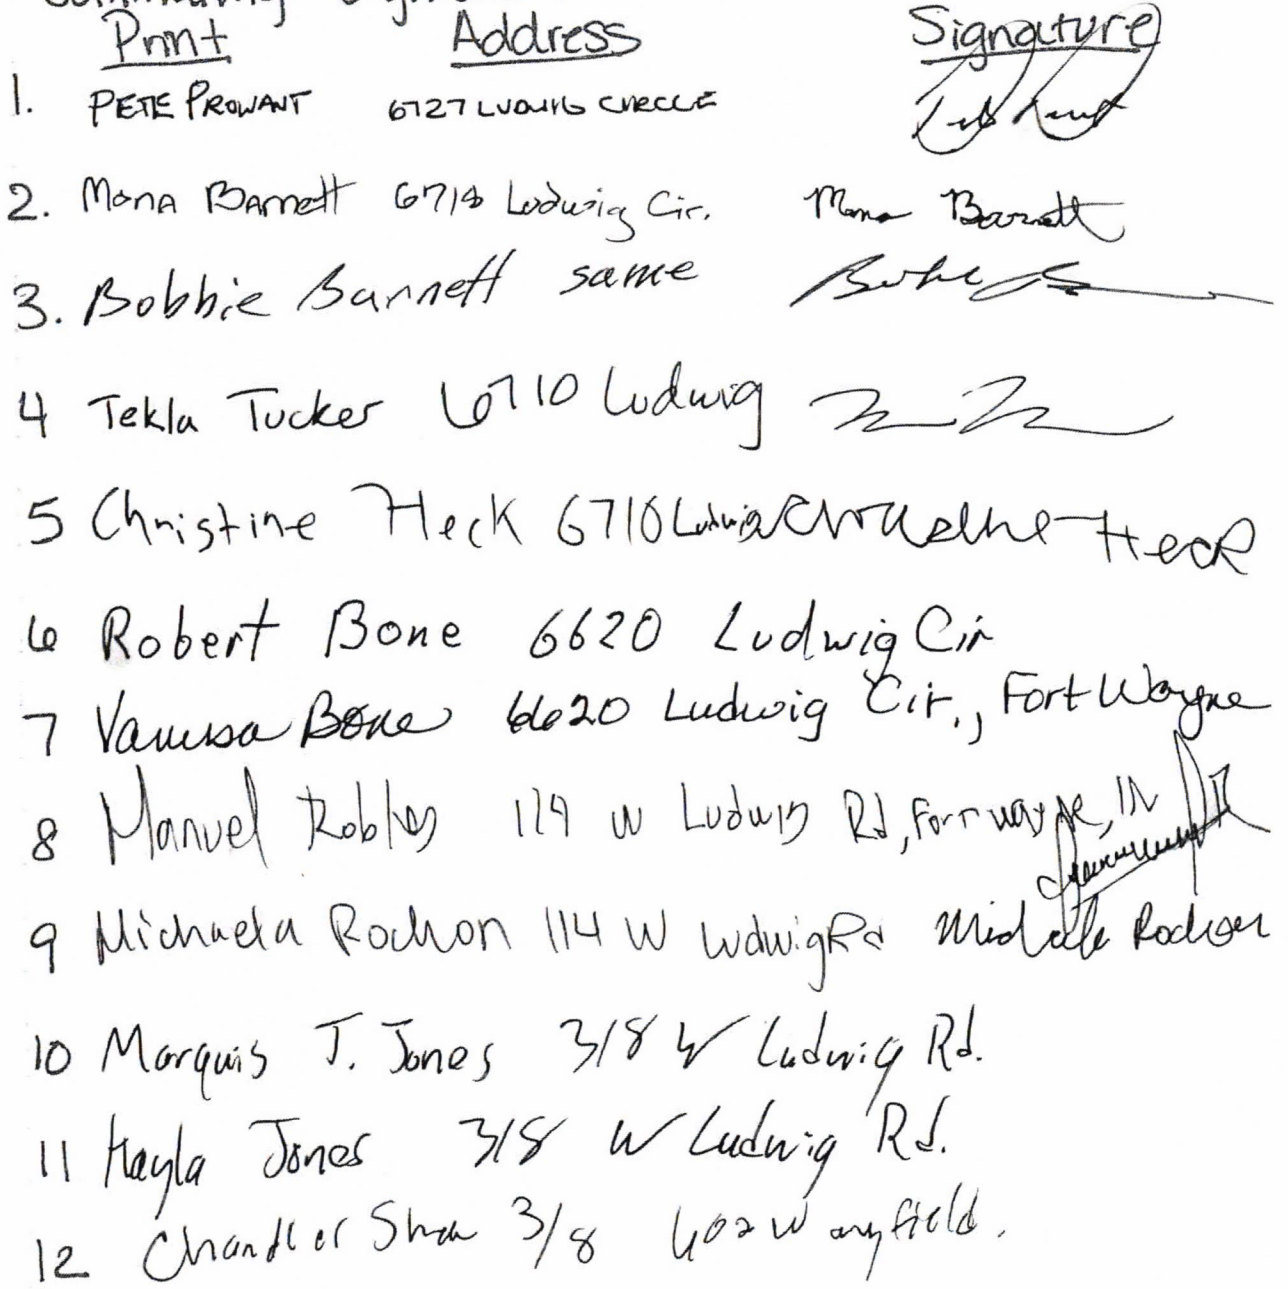 Print Address Signature
1. PETE PROWANT 6727 LUDWIG CIRCLE
2. Mona Barnett 6718 Ludwig Cir. Mona Barnett
3. Bobbie Barnett same
4 Tekla Tucker 6710 Ludwig
5 Christine Heck 6710 Ludwig Christine Heck
6 Robert Bone 6620 Ludwig Cir
7 Vanessa Bone 6620 Ludwig Cir., Fort Wayne
8 Manuel Robles 114 W Ludwig Rd, Fort Wayne, IN
9 Michaela Rochon 114 W Ludwig Rd Rochon
10 Marquis J. Jones 318 W Ludwig Rd.
11 Kayla Jones 318 W Ludwig Rd.
12 Chandler 3/8